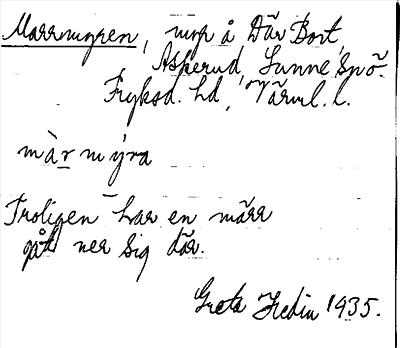 Marrmyren, myr å Där Bort,
Askerud, Sunne sn ö.
Fryksd. hd, Värml. l.
màr mýra
Troligen har en märr
gått ner sig där.
Greta Hedin 1935.